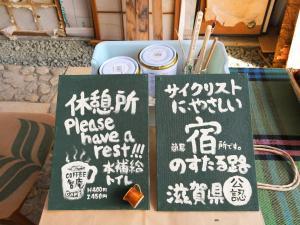 休憩所
Please
have a
rest!!!
水補給
トイレ
COFFEE
サイクリスト
にやさしい
宿
所です。
のすたる路
滋賀県公認